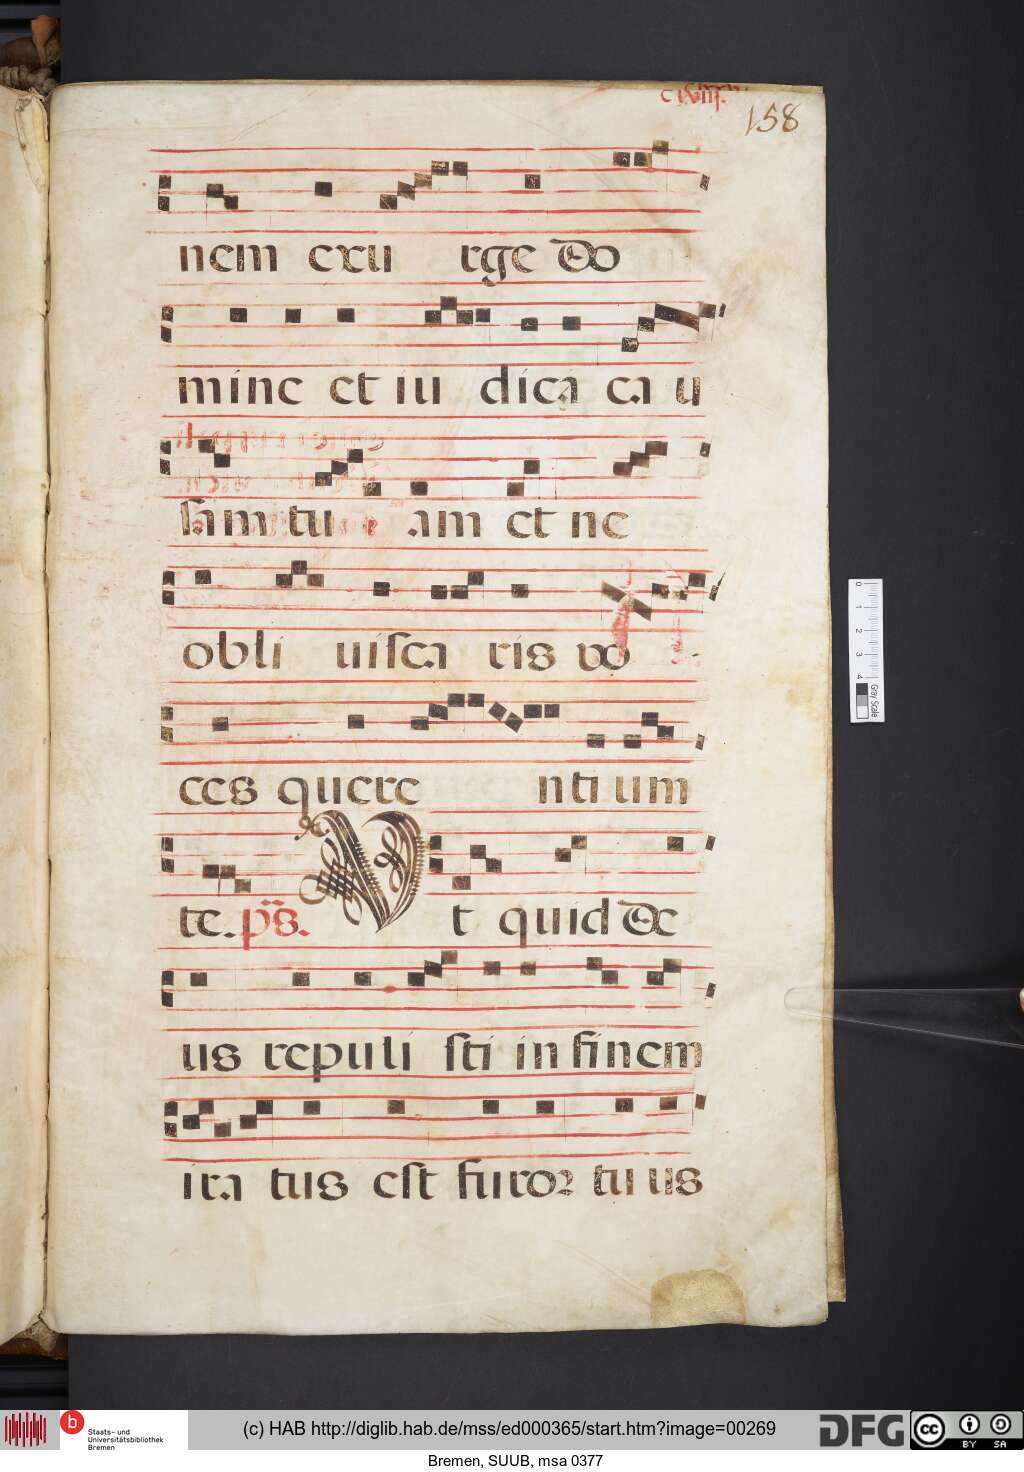 158
nem exu rge do
mine et iu dica ca u
sam tu am et ne
obli uisca ris vo
ces quere nti um
te. ps. V t quid de
us repuli sti in finem
ira tus est furor tu us
0 1 2 3 4
Gray Scale
b
Staats- und
Universitätsbibliothek
Bremen
(c) HAB http://diglib.hab.de/mss/ed000365/start.htm?image=00269
DFG
cc BY SA
Bremen, SUUB, msa 0377